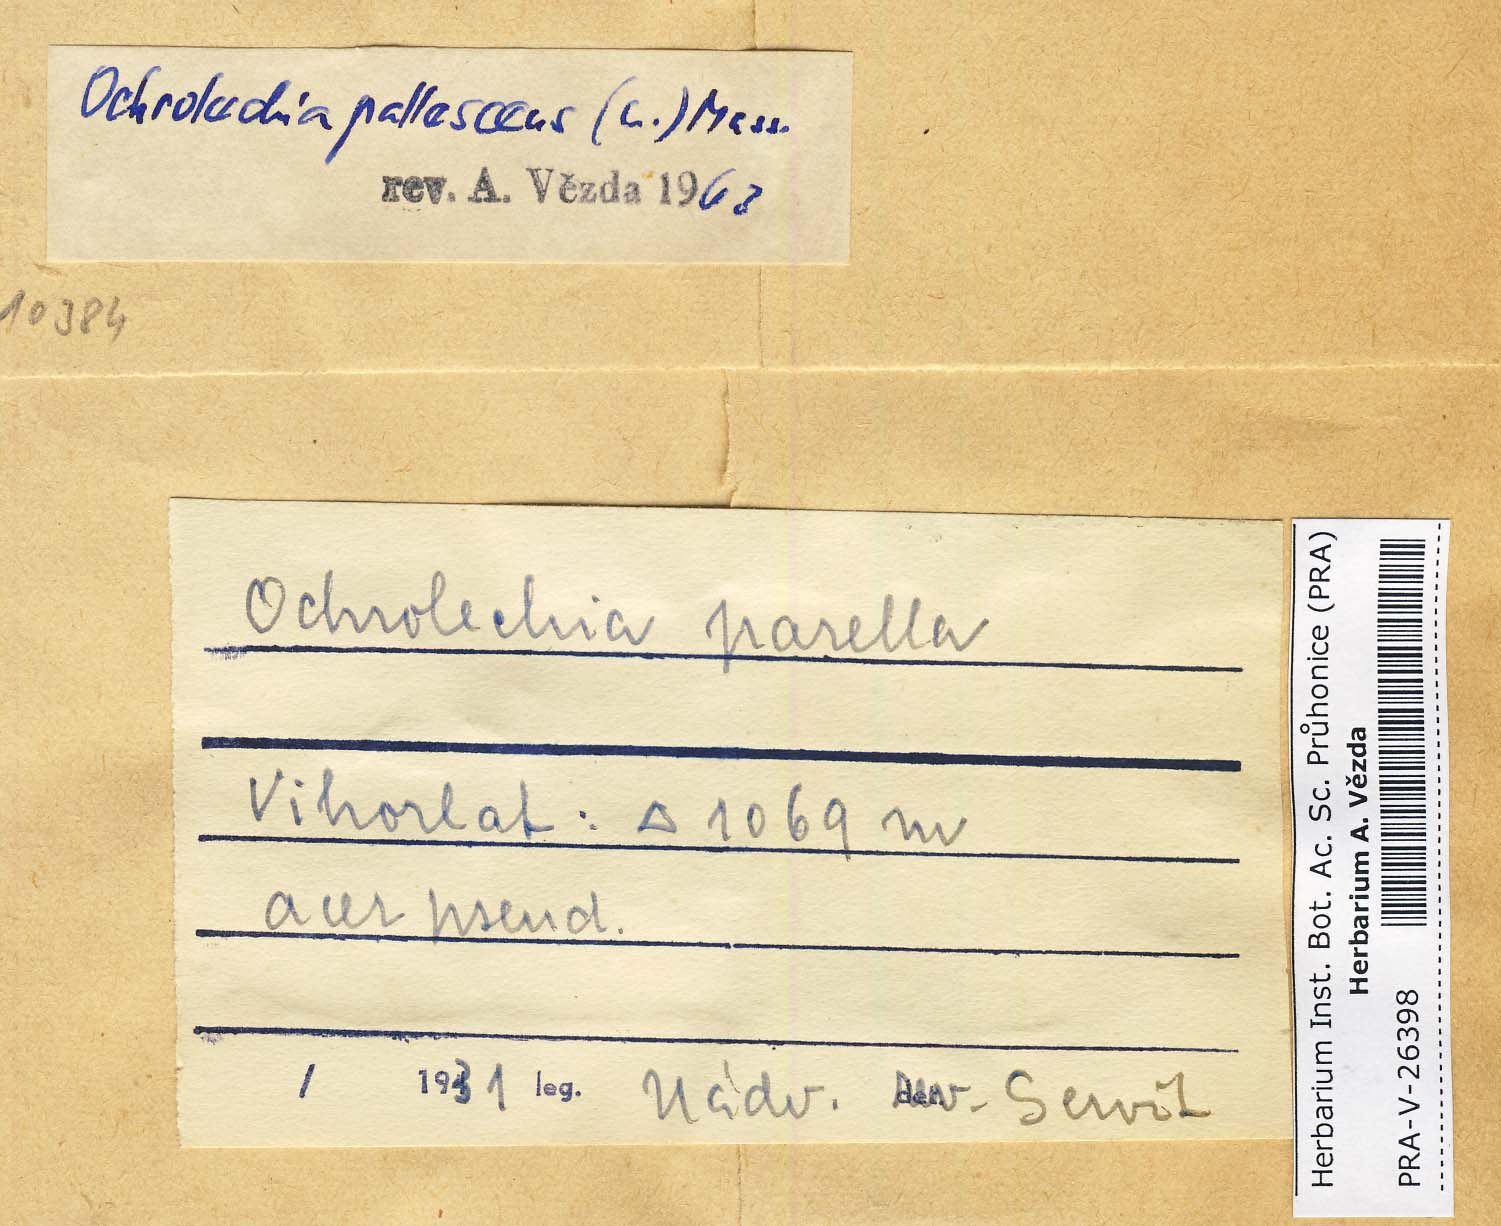 Ochrolechia pallescens (L.) Mass.
rev. A. Vězda 1963
10384
Ochrolechia parella
Vihorlat: Δ 1069 m
acer pseud.
/ 1931 leg. Nádv. rev. Servít
Herbarium Inst. Bot. Ac. Sc. Průhonice (PRA)
Herbarium A. Vězda
PRA-V-26398